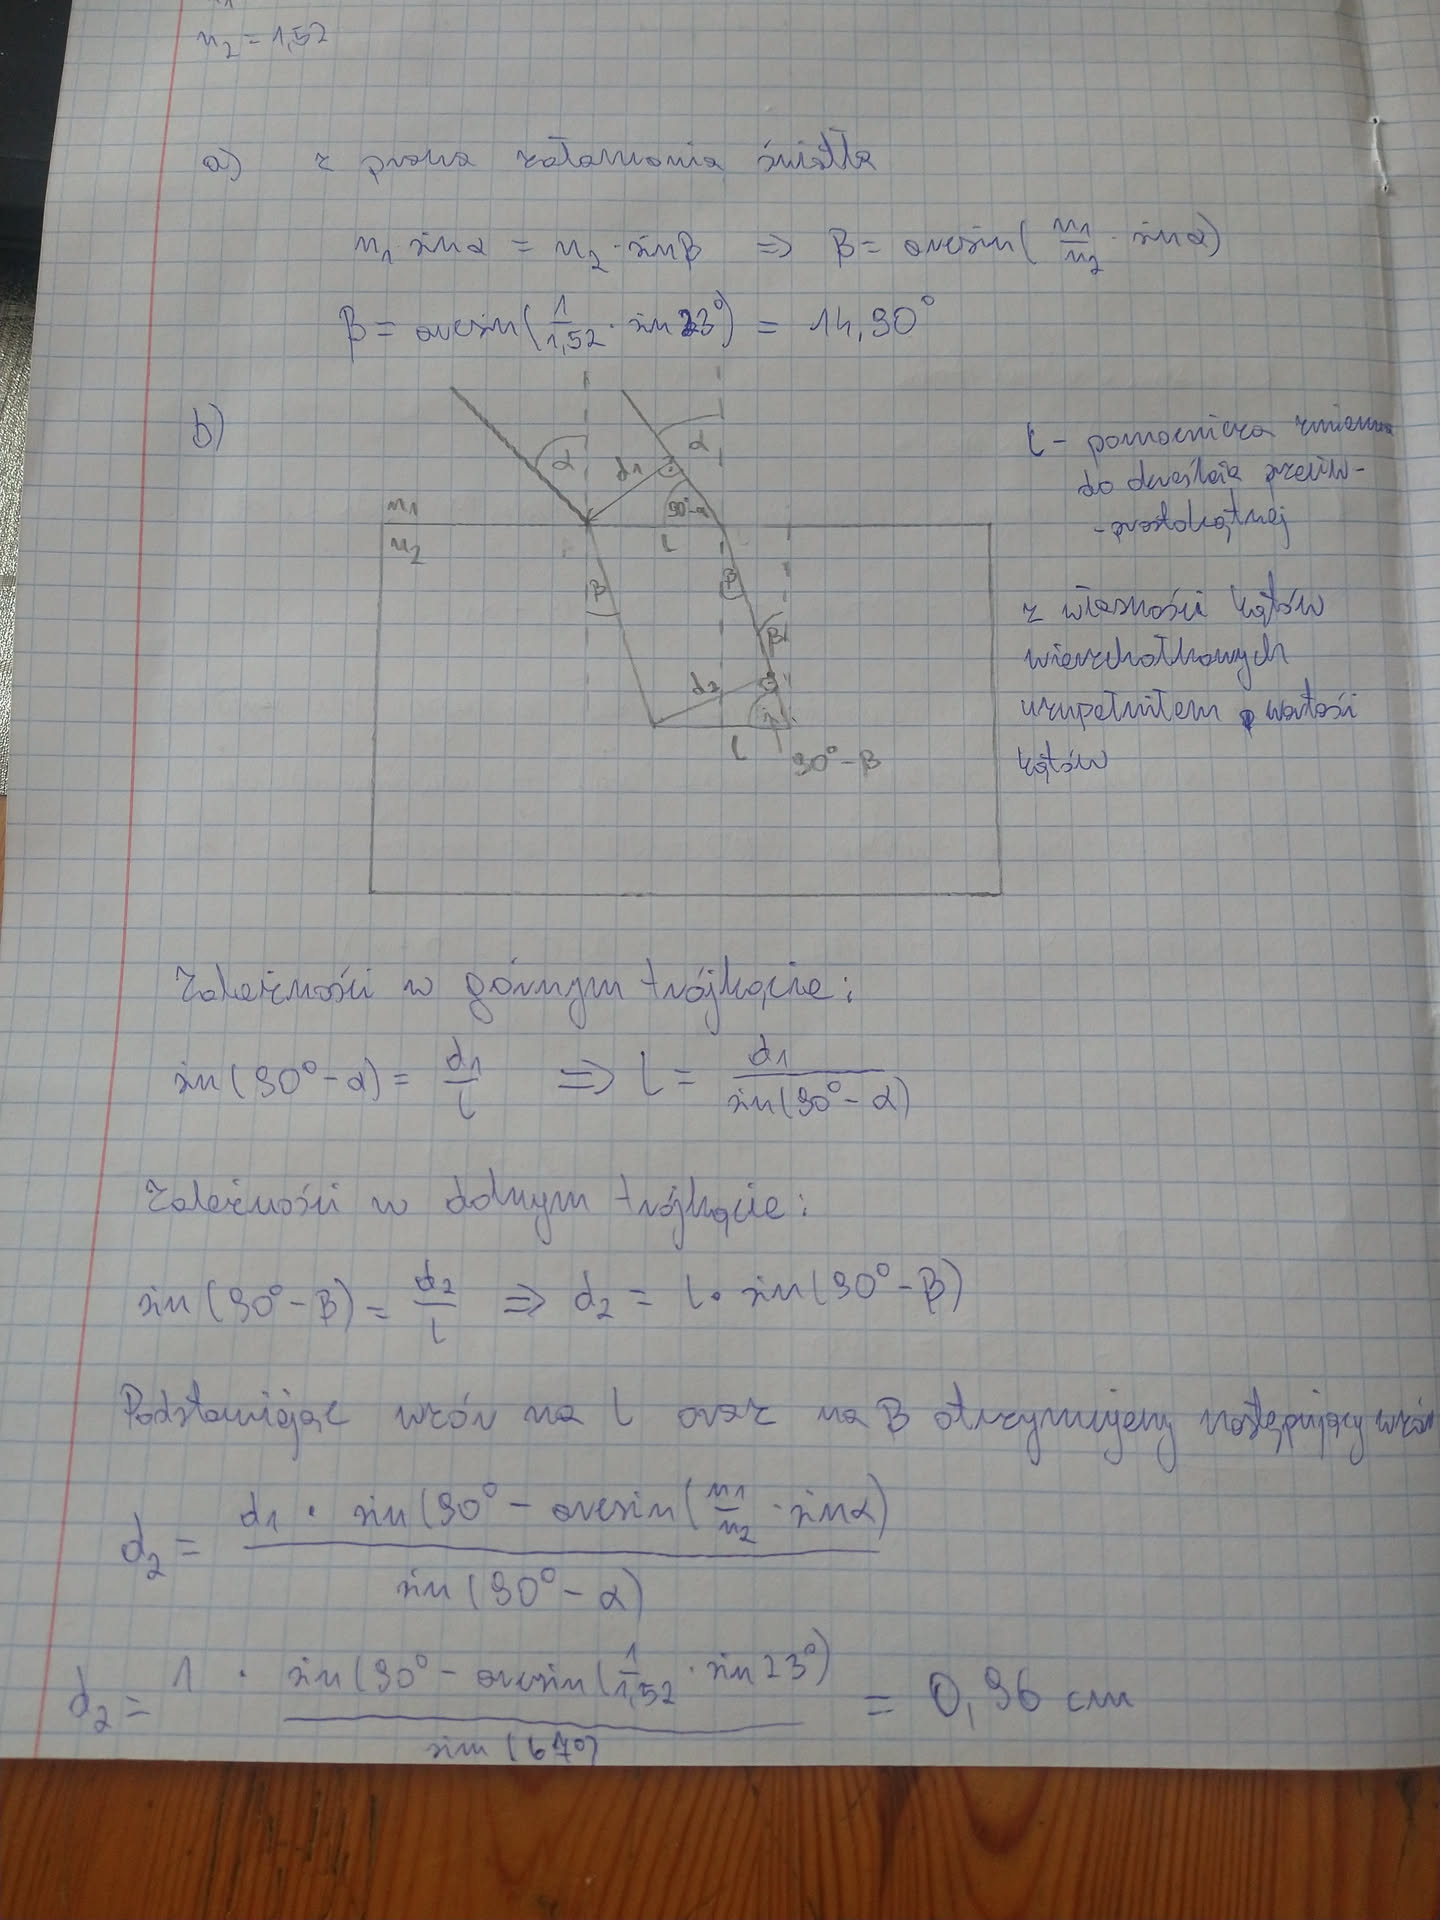 n₂ = 1,52
a) z prawa załamania światła
n₁·sinα = n₂·sinβ ⇒ β = arcsin(n₁/n₂ · sinα)
β = arcsin(1/1,52 · sin23°) = 14,90°
b)
α
α
d₁
90°-α
n₁
n₂
l
β
β
β
d₂
l
90°-β
l - pomocnicza zmienna
do określenia przeciw-
-prostokątnej
z własności kątów
wierzchołkowych
uzupełniłem wartości
kątów
Zależności w górnym trójkącie:
sin(90°-α) = d₁/l ⇒ l = d₁/sin(90°-α)
Zależności w dolnym trójkącie:
sin(90°-β) = d₂/l ⇒ d₂ = l·sin(90°-β)
Podstawiając wzór na l oraz na β otrzymujemy następujący wzór
d₂ = d₁·sin(90°-arcsin(n₁/n₂ · sinα)/sin(90°-α)
d₂ = 1 · sin(90°-arcsin(1/1,52 · sin23°)/sin(67°) = 0,96 cm